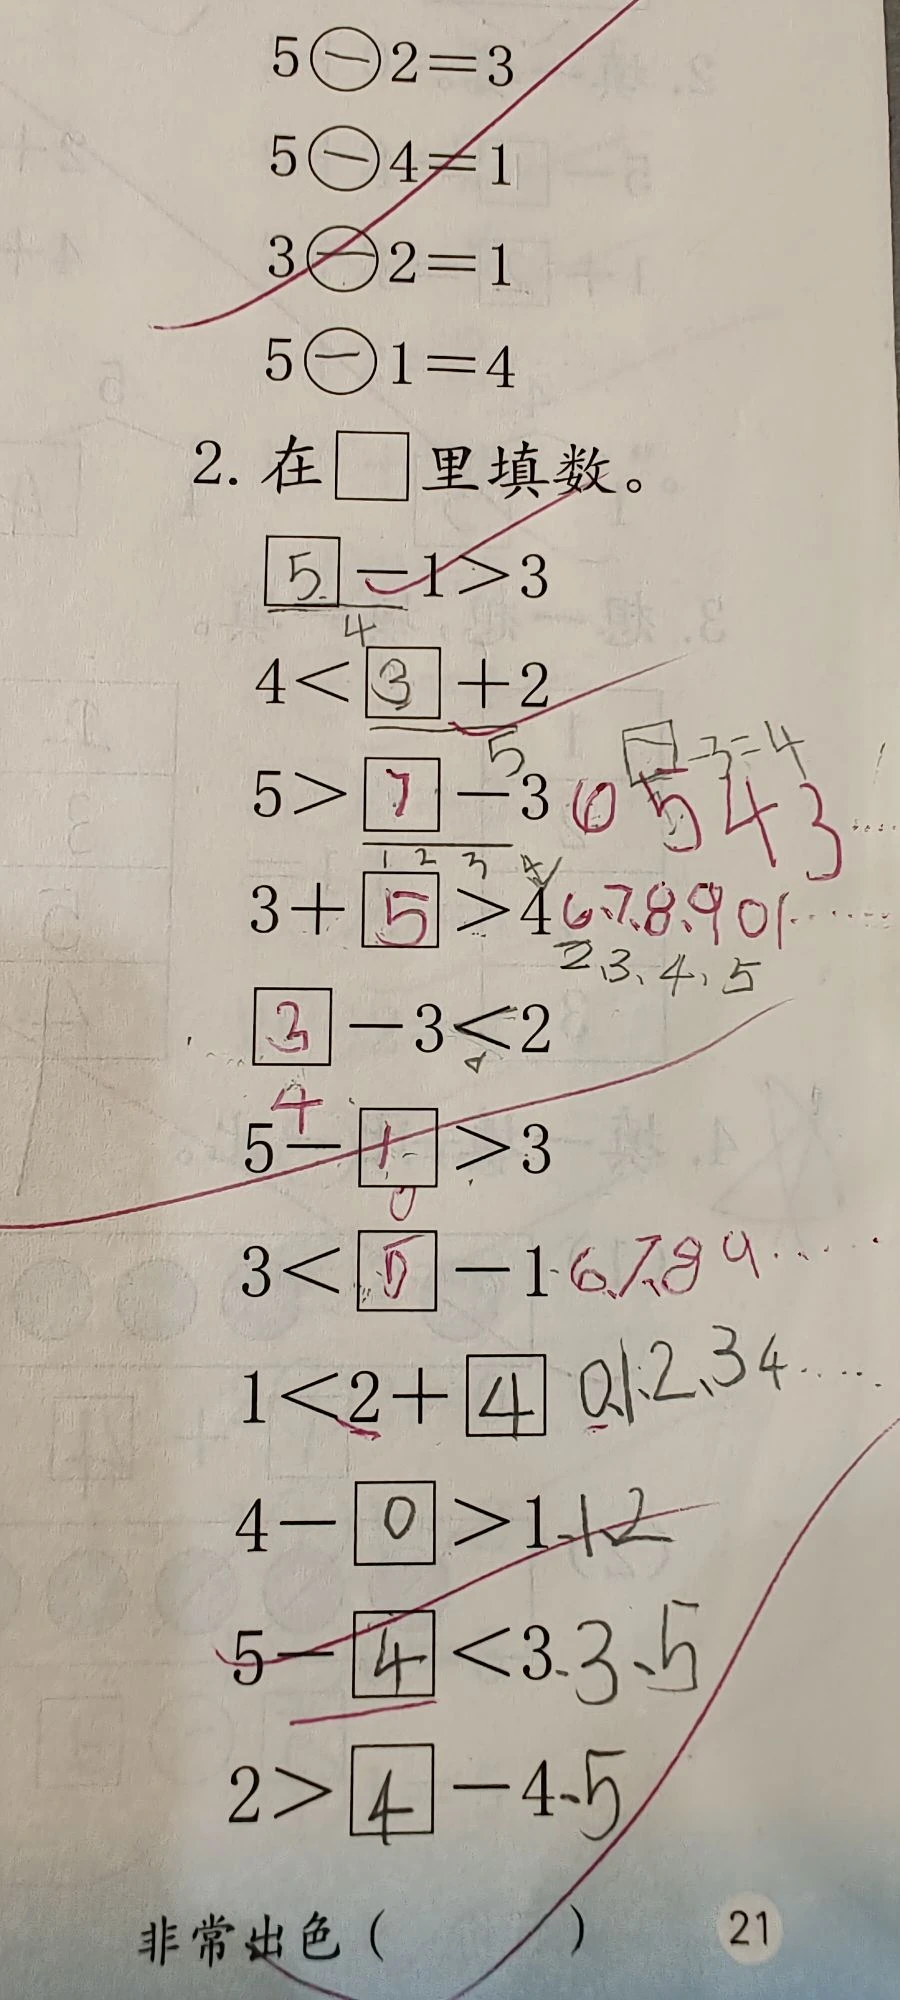 5－2＝3
5－4＝1
3－2＝1
5－1＝4
2. 在□里填数。
5 －1＞3
4
4＜3＋2
5
－3＝4
5＞7－3 6 5 4 3 ……
1 2 3 4
3＋5＞4 6、7、8、9 01……
2、3、4、5
3－3＜2
4
5－1＞3
0
3＜5－1 6、7、8 9……
1＜2＋4 0、1、2、3 4……
4－0＞1、1、2
5－4＜3、3、5
2＞4－4、5
非常出色（ ）
21